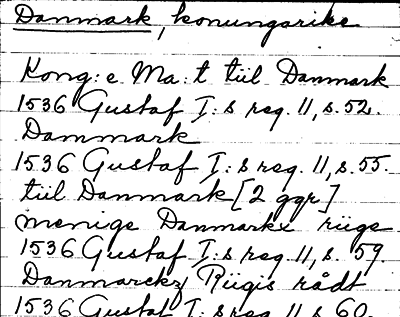 Danmark, konungarike
Kong:e Ma:t tiil Danmark
1536 Gustaf I:s reg. 11, s. 52.
Danmark
1536 Gustaf I:s reg. 11, s. 55.
tiil Danmark [2 ggr]
menige Danmarkx riige
1536 Gustaf I:s reg. 11, s. 59.
Danmarckz Riigis rådt
1536 Gustaf I:s reg. 11, s. 60.